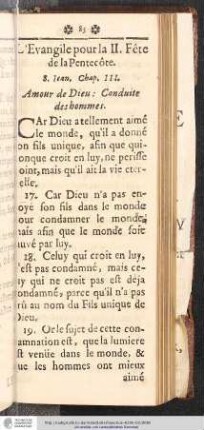 83
L'Evangile pour la II. Fête
de la Pentecôte.
S. Jean, Chap. III.
Amour de Dieu: Conduite
des hommes.
CAr Dieu a tellement aimé
le monde, qu'il a donné
on fils unique, afin que qui-
onque croit en luy, ne perisse
oint, mais qu'il ait la vie eter-
elle.
17. Car Dieu n'a pas en-
oyé son fils dans le monde
our condamner le monde,
nais afin que le monde soit
auvé par luy.
18. Celuy qui croit en luy,
'est pas condamné, mais ce-
uy qui ne croit pas est déja
ondamné, parce qu'il n'a pas
rû au nom du Fils unique de
Dieu.
19. Or le sujet de cette con-
amnation est, que la lumiere
st venüe dans le monde, &
ue les hommes ont mieux
aimé